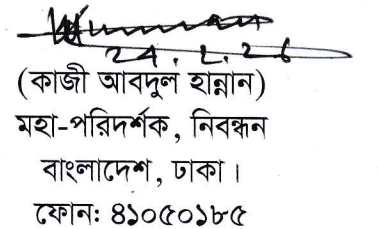 24.2.26
(কাজী আবদুল হান্নান)
মহা-পরিদর্শক, নিবন্ধন
বাংলাদেশ, ঢাকা।
ফোনঃ ৪১০৫০১৮৫